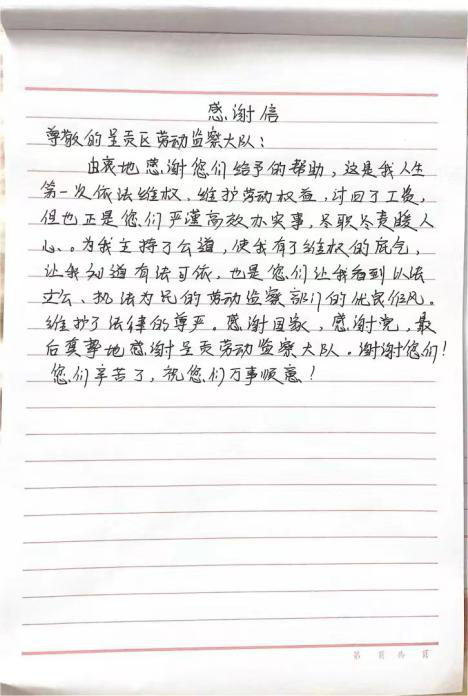 感谢信
尊敬的呈贡区劳动监察大队：
由衷地感谢您们给予的帮助，这是我人生
第一次依法维权、维护劳动权益，讨回了工资，
但也正是您们严谨高效办实事，尽职尽责暖人
心、。为我主持了公道，使我有了维权的底气，
让我知道有法可依，也是您们让我看到以法
为公、执法为民的劳动监察部门的优良作风。
维护了法律的尊严。感谢国家，感谢党，最
后真挚地感谢呈贡劳动监察大队。谢谢您们！
您们辛苦了，祝您们万事顺意！
第 页 共 页